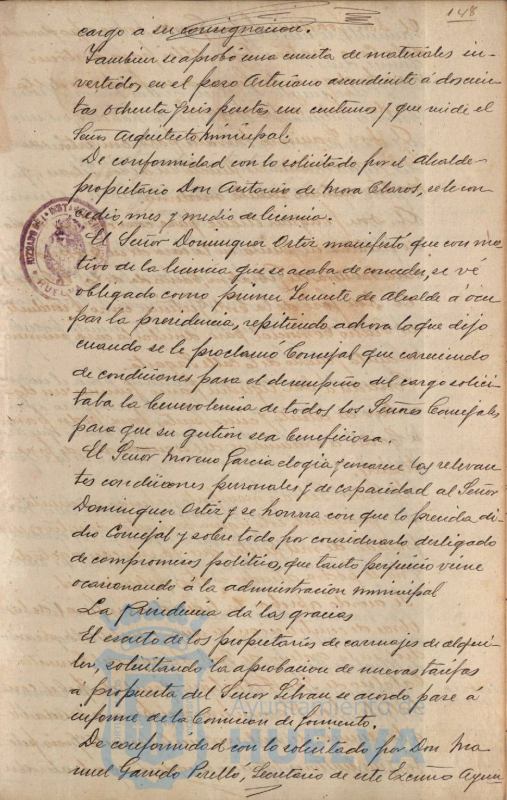 148
cargo a su consignacion.
Tambien se aprobó una cuenta de materiales in-
vertidos en el pozo Artesiano ascendiente á doscien-
tas ochenta y seis pesetas, un centimos y que rinde el
Señor Arquitecto Municipal.
De conformidad con lo solicitado por el Alcalde
propietario Don Antonio de Mora Claros, se le con-
cedió, mes y medio de licencia.
El Señor Dominguez Ortiz manifestó que con mo-
tivo de la licencia que se acaba de conceder, se vé
obligado como primer Teniente de Alcalde á ocu-
par la presidencia, repitiendo adhora lo que dijo
cuando se le proclamó Concejal que careciendo
de condiciones para el desempeño del cargo solici-
taba la benevolencia de todos los Señores Concejales
para que su gestion sea beneficiosa.
El Señor Moreno Garcia elogia y encarece las relevan-
tes condiciones personales y de capacidad al Señor
Dominguez Ortiz y se honrra con que lo presida di-
cho Concejal y sobre todo por considerarlo desligado
de compromisos politicos, que tanto perjuicio viene
ocasionando á la administracion municipal
La Presidencia dá las gracias
El escrito de los propietarios de carruajes de alqui-
ler, solicitando la aprobacion de nuevas tarifas
a propuesta del Señor Silvan se acordó pase á
informe de la Comision de Fomento.
De conformidad con lo solicitado por Don Ma-
nuel Garrido Perelló, Secretario de este Excmo Ayun-
Ayuntamiento de
HUELVA